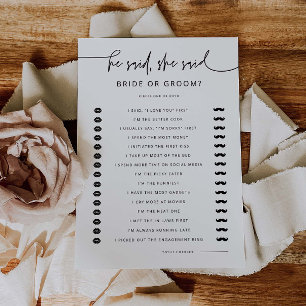 he said, she said
BRIDE OR GROOM?
I SAID, "I LOVE YOU" FIRST
I'M THE BETTER COOK
I USUALLY SAY, "I'M SORRY" FIRST
I SPEND THE MOST MONEY
I INITIATED THE FIRST KISS
I TAKE UP MOST OF THE BED
I SPEND MORE TIME ON SOCIAL MEDIA
I'M THE PICKY EATER
I'M THE FUNNIEST
I HAVE THE MOST GADGETS
I CRY MORE AT MOVIES
I'M THE NEAT ONE
I MET THE IN-LAWS FIRST
I'M ALWAYS RUNNING LATE
I PICKED OUT THE ENGAGEMENT RING